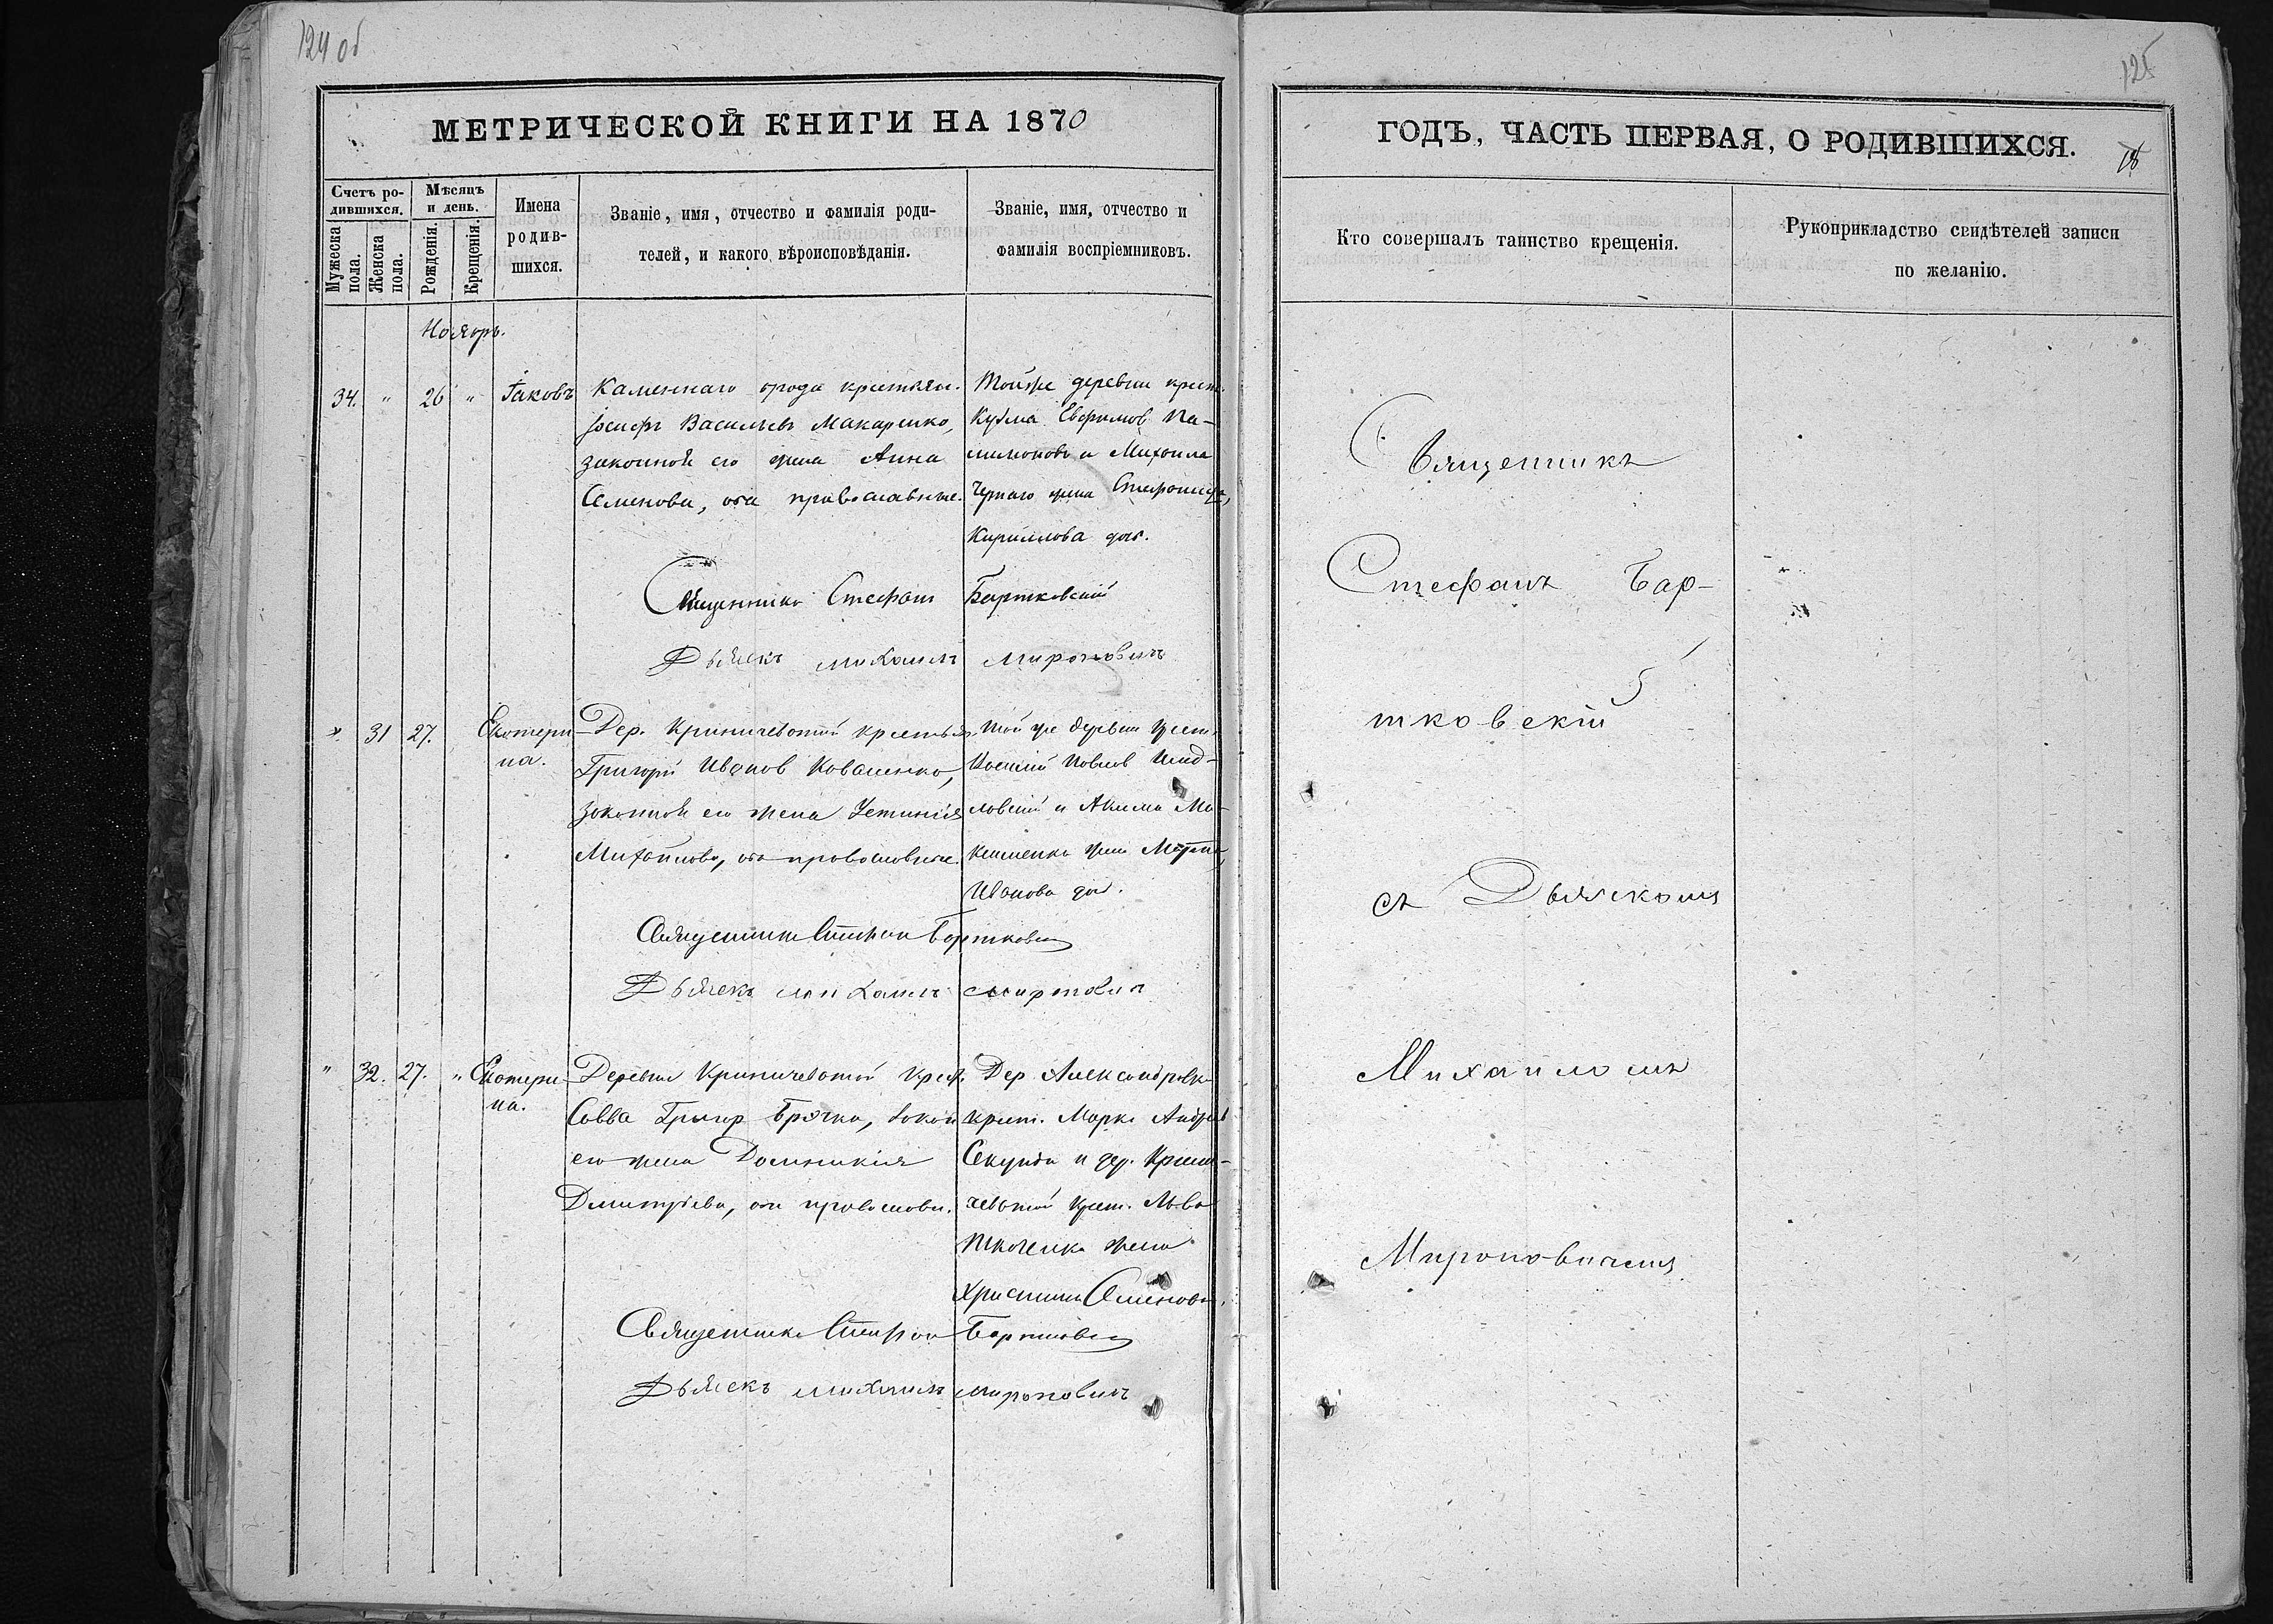 124 об
МЕТРИЧЕСКОЙ КНИГИ НА 1870
Счетъ ро-
дившихся.
Мѣсяцъ
и день.
Мужеска
пола.
Женска
пола.
Рожденія.
Крещенія.
Имена
родив-
шихся.
Званіе, имя, отчество и фамилія роди-
телей, и какого вѣроисповѣданія.
Званіе, имя, отчество и
фамилія воспріемниковъ.
Ноябрь.
34. " 26 " Іаковъ
Каменнаго брода крестьян.
Іосифъ Васильевъ Макаренко,
законной его жена Анна
Семенова, оба православные.
Тойже деревни крест.
Кузма Евфимов
и Михаила
Чернаго жена Стефанида,
Кирилова доч.
Священникъ Стефанъ Бартковскій
Дьячекъ михаилъ мироновичъ
" 31 27. Екатери
на.
Дер. Криничеватой крестьян.
Григорій Иванов Коваленко,
законной его жена Устинія
Михайлова, оба православные.
Той же деревни крест.
и Акима
жена
Иванова доч.
Священникъ Стефан Бартковскій
Дьячекъ михаилъ мироновичъ
" 32. 27. " Екатери
на.
Деревни Криничеватой крест.
Савва Григор Брячка, закон
его жена Домникія
Дмитріева, оба православн.
Дер Александровк
крест. Марко Андреев
Секунда и дер. Крини-
чеватой крест. Льва
Ткаченка жена
Христина Семенова.
Священникъ Стефан Бартковскій
Дьячекъ михаилъ мироновичъ
125
ГОДЪ, ЧАСТЬ ПЕРВАЯ, О РОДИВШИХСЯ.
Кто совершалъ таинство крещенія.
Рукоприкладство свидѣтелей записи
по желанію.
Священникъ
Стефанъ Бар-
тковскій
съ Дьячкомъ
Михаиломъ
Мироновичемъ